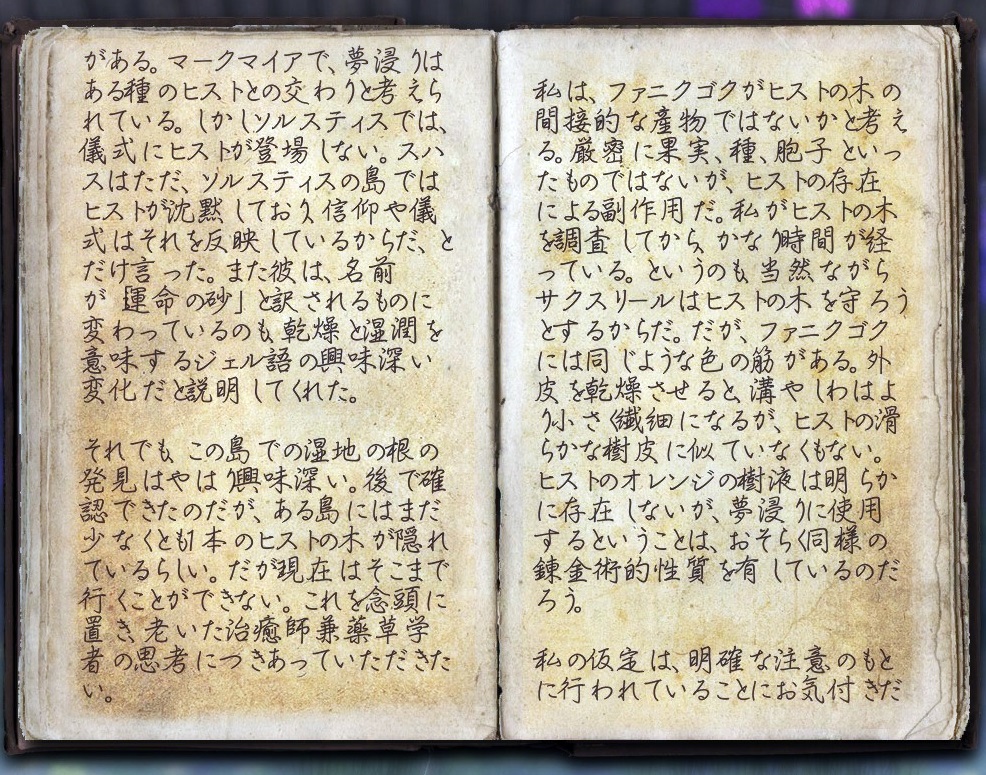 がある。マークマイアで、夢浸りは
ある種のヒストとの交わりと考えら
れている。しかしソルスティスでは、
儀式にヒストが登場しない。スハ
スはただ、ソルスティスの島では
ヒストが沈黙しており、信仰や儀
式はそれを反映しているからだ、と
だけ言った。また彼は、名前
が「運命の砂」と訳されるものに
変わっているのも、乾燥と湿潤を
意味するジェル語の興味深い
変化だと説明してくれた。
それでも、この島での湿地の根の
発見はやはり興味深い。後で確
認できたのだが、ある島にはまだ
少なくとも1本のヒストの木が隠れ
ているらしい。だが現在はそこまで
行くことができない。これを念頭に
置き、老いた治癒師兼薬草学
者の思考につきあっていただきた
い。
私は、ファニクゴクがヒストの木の
間接的な産物ではないかと考え
る。厳密に果実、種、胞子といっ
たものではないが、ヒストの存在
による副作用だ。私がヒストの木
を調査してから、かなり時間が経
っている。というのも、当然ながら
サクスリールはヒストの木を守ろう
とするからだ。だが、ファニクゴク
には同じような色の筋がある。外
皮を乾燥させると、溝やしわはよ
り小さく繊細になるが、ヒストの滑
らかな樹皮に似ていなくもない。
ヒストのオレンジの樹液は明らか
に存在しないが、夢浸りに使用
するということは、おそらく同様の
錬金術的性質を有しているのだ
ろう。
私の仮定は、明確な注意のもと
に行われていることにお気付きだ